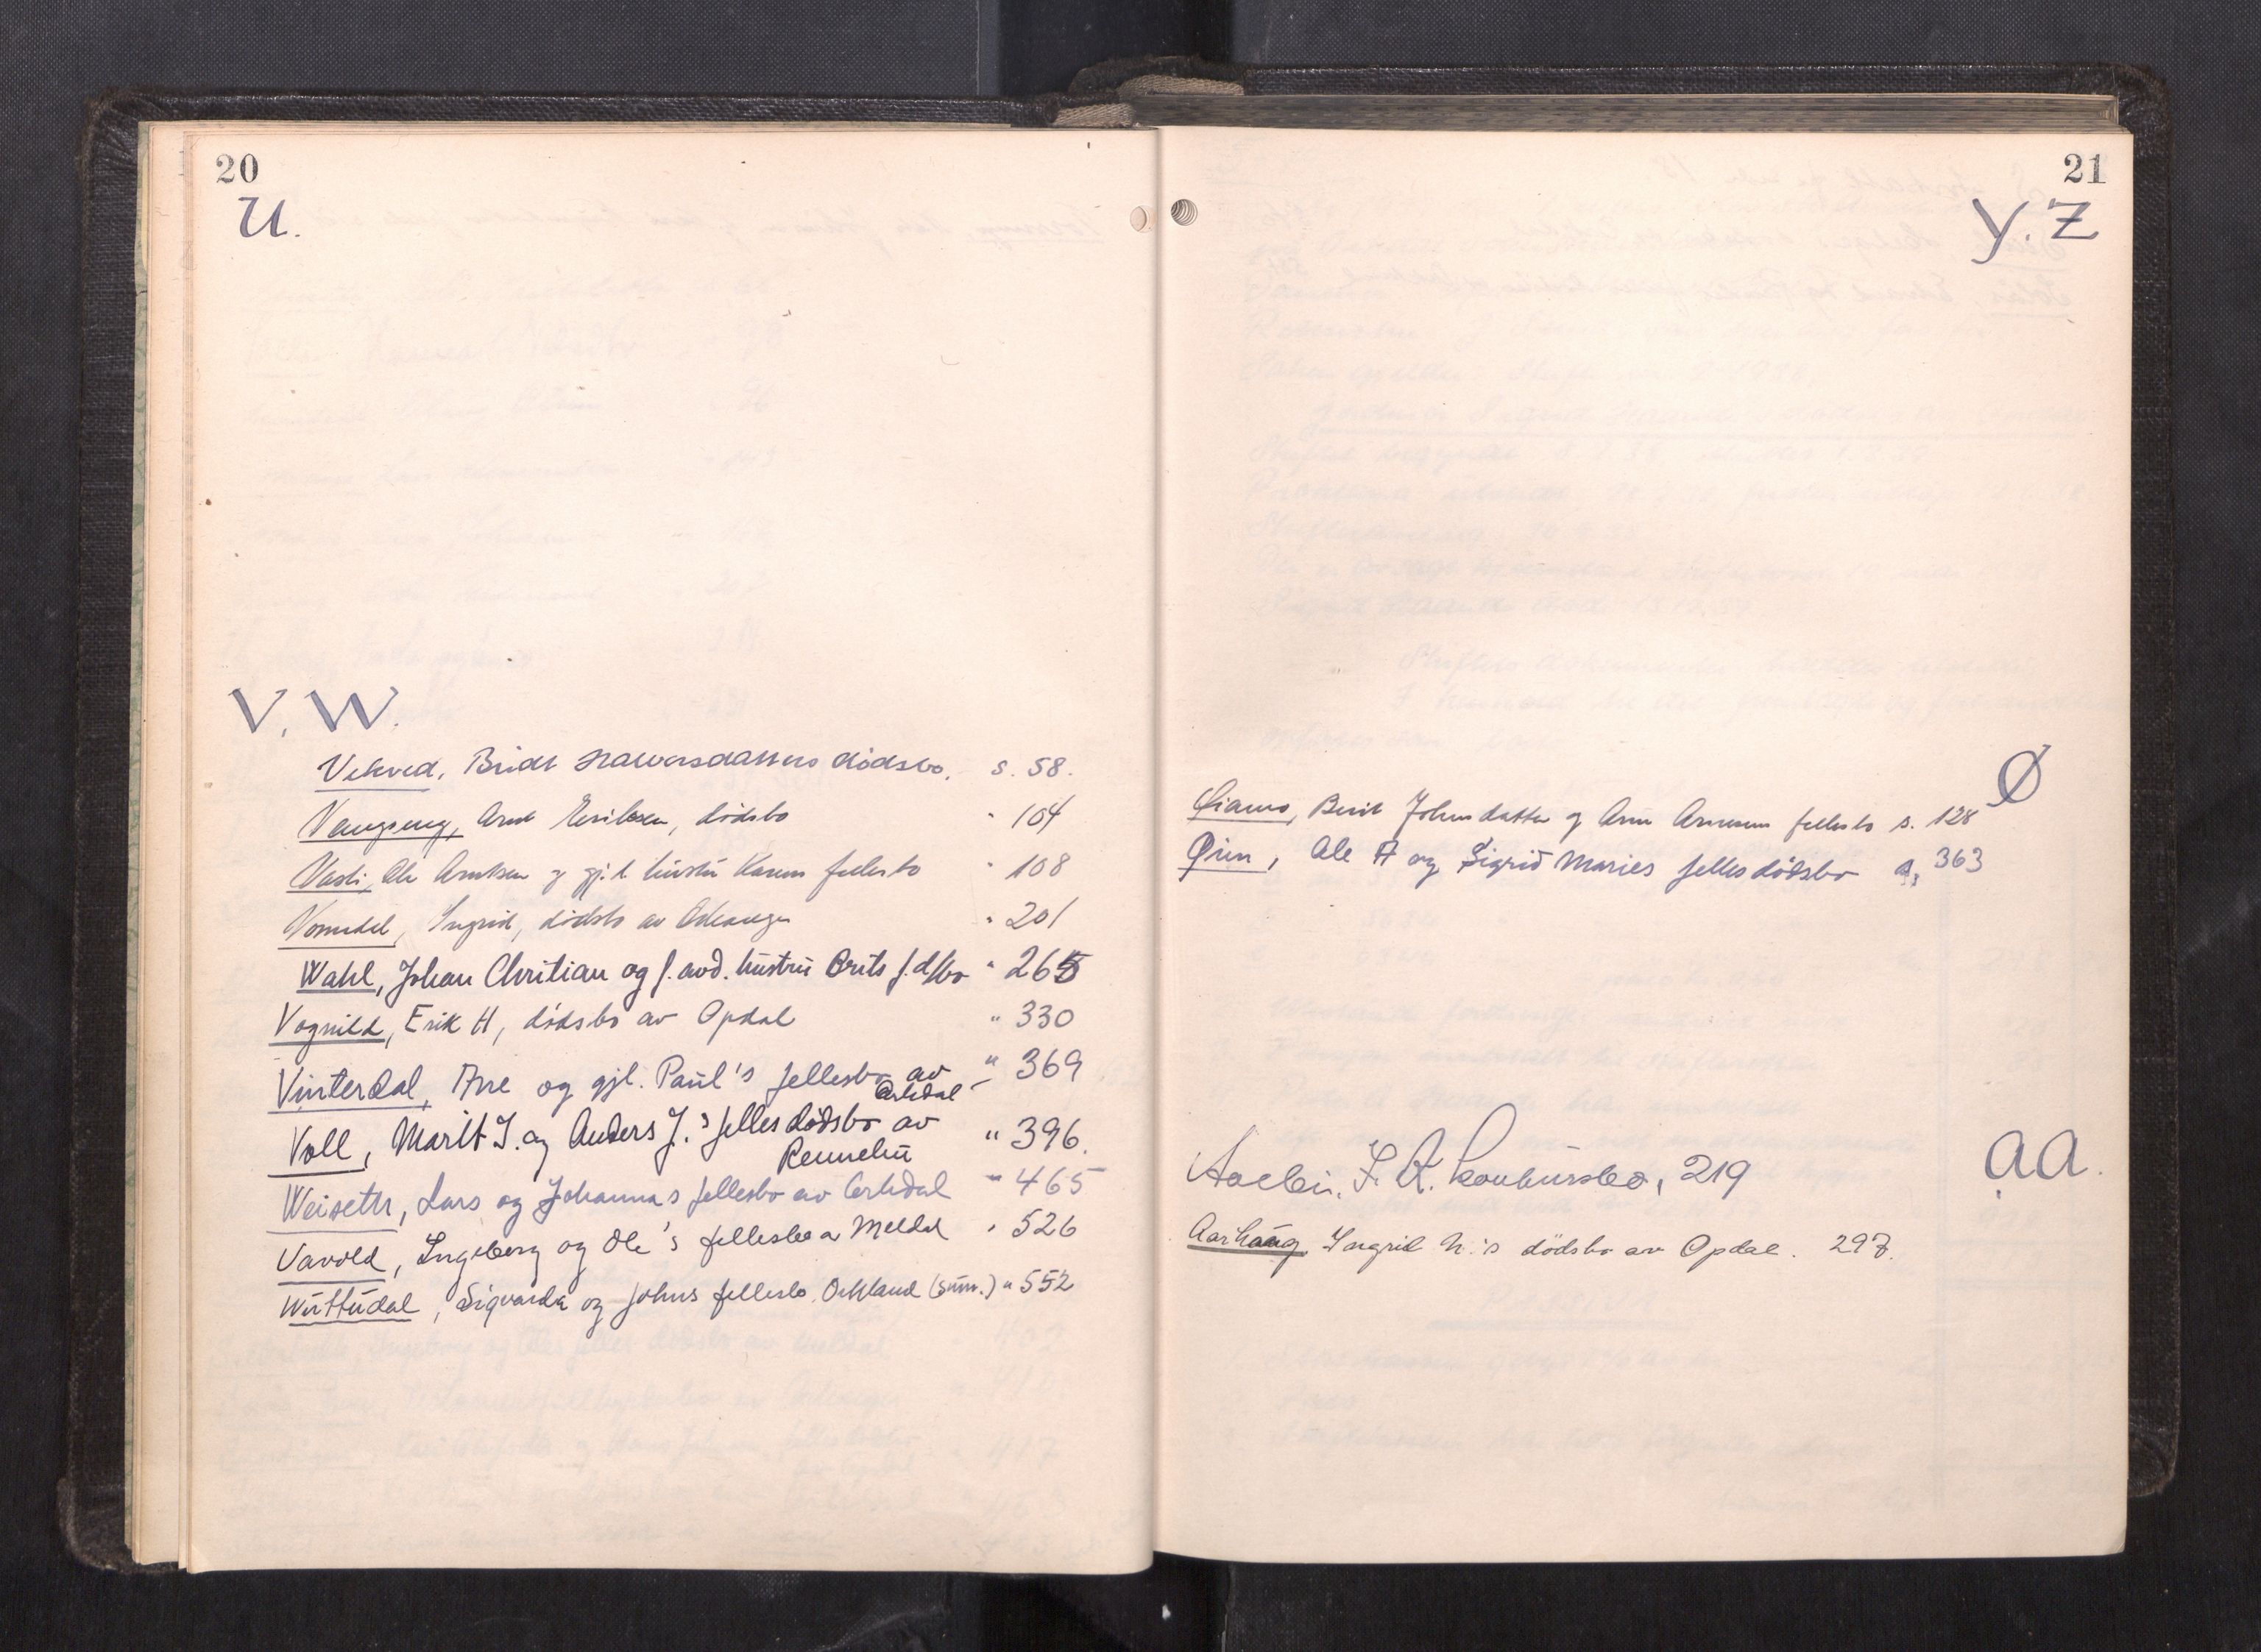 20
U.
V. W.
Vekved, Bridt Halvorsdatters dødsbo. s. 58.
Vangseng, Arnt Eriksen, dødsbo " 104
Vasli, Ole Arntsen og gj.l. hustru Karens fellesbo " 108
Vormdal, Ingrid, dødsbo av Orkanger " 201
Wahl, Johan Christian og f. avd. hustru Brits f.d/bo " 265
Vognild, Erik H, dødsbo av Opdal " 330
Vinterdal, Ane og gjl. Paul's fellesbo av " 369
Orkdal
Voll, Marit J. og Anders J.'s felles dødsbo av " 396.
Rennebu
Weiseth, Lars og Johannas fellesbo av Orkdal " 465
Vavold, Ingeborg og Ole's fellesbo a Meldal " 526
Wuttudal, Sigvarda og Johns fellesbo Orkland (sum.) " 552
21
Y. Z
Ø
Berit Johnsdatter og Arne Arnesens fellesbo s. 128
Øien, Ole A og Sigrid Maries felles dødsbo s. 363
AA.
konkursbo, 219
Aarhaug, Ingrid N.'s dødsbo av Opdal. 297.